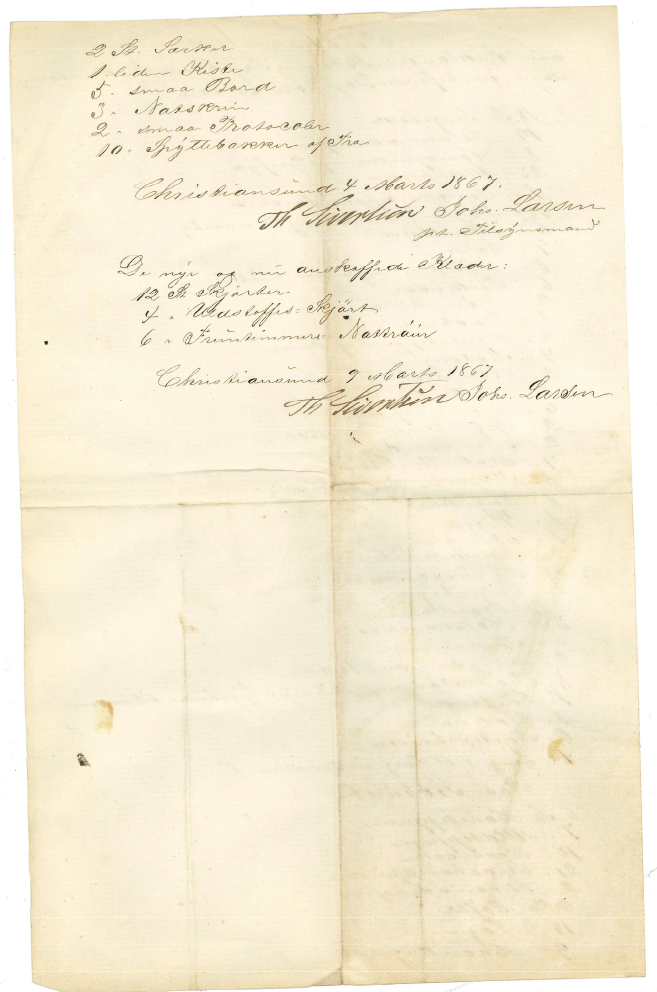 2 St. Særker
1 liden Kiste
5 " smaa Bord
3 " Natskrin
2 " smaa Protocoler
10 " Spyttebakker af Træ
Christiansund 4 Marts 1867.
Th Sivertsen Johs. Larsen
pt. Tilsynsmand
De nye og nu anskaffede Klæder:
12 St Skjorter
4 " Uldstoffes-Skjørt
6 " Fruentimmers
Christiansund 9 Marts 1867
Th Sivertsen Johs. Larsen